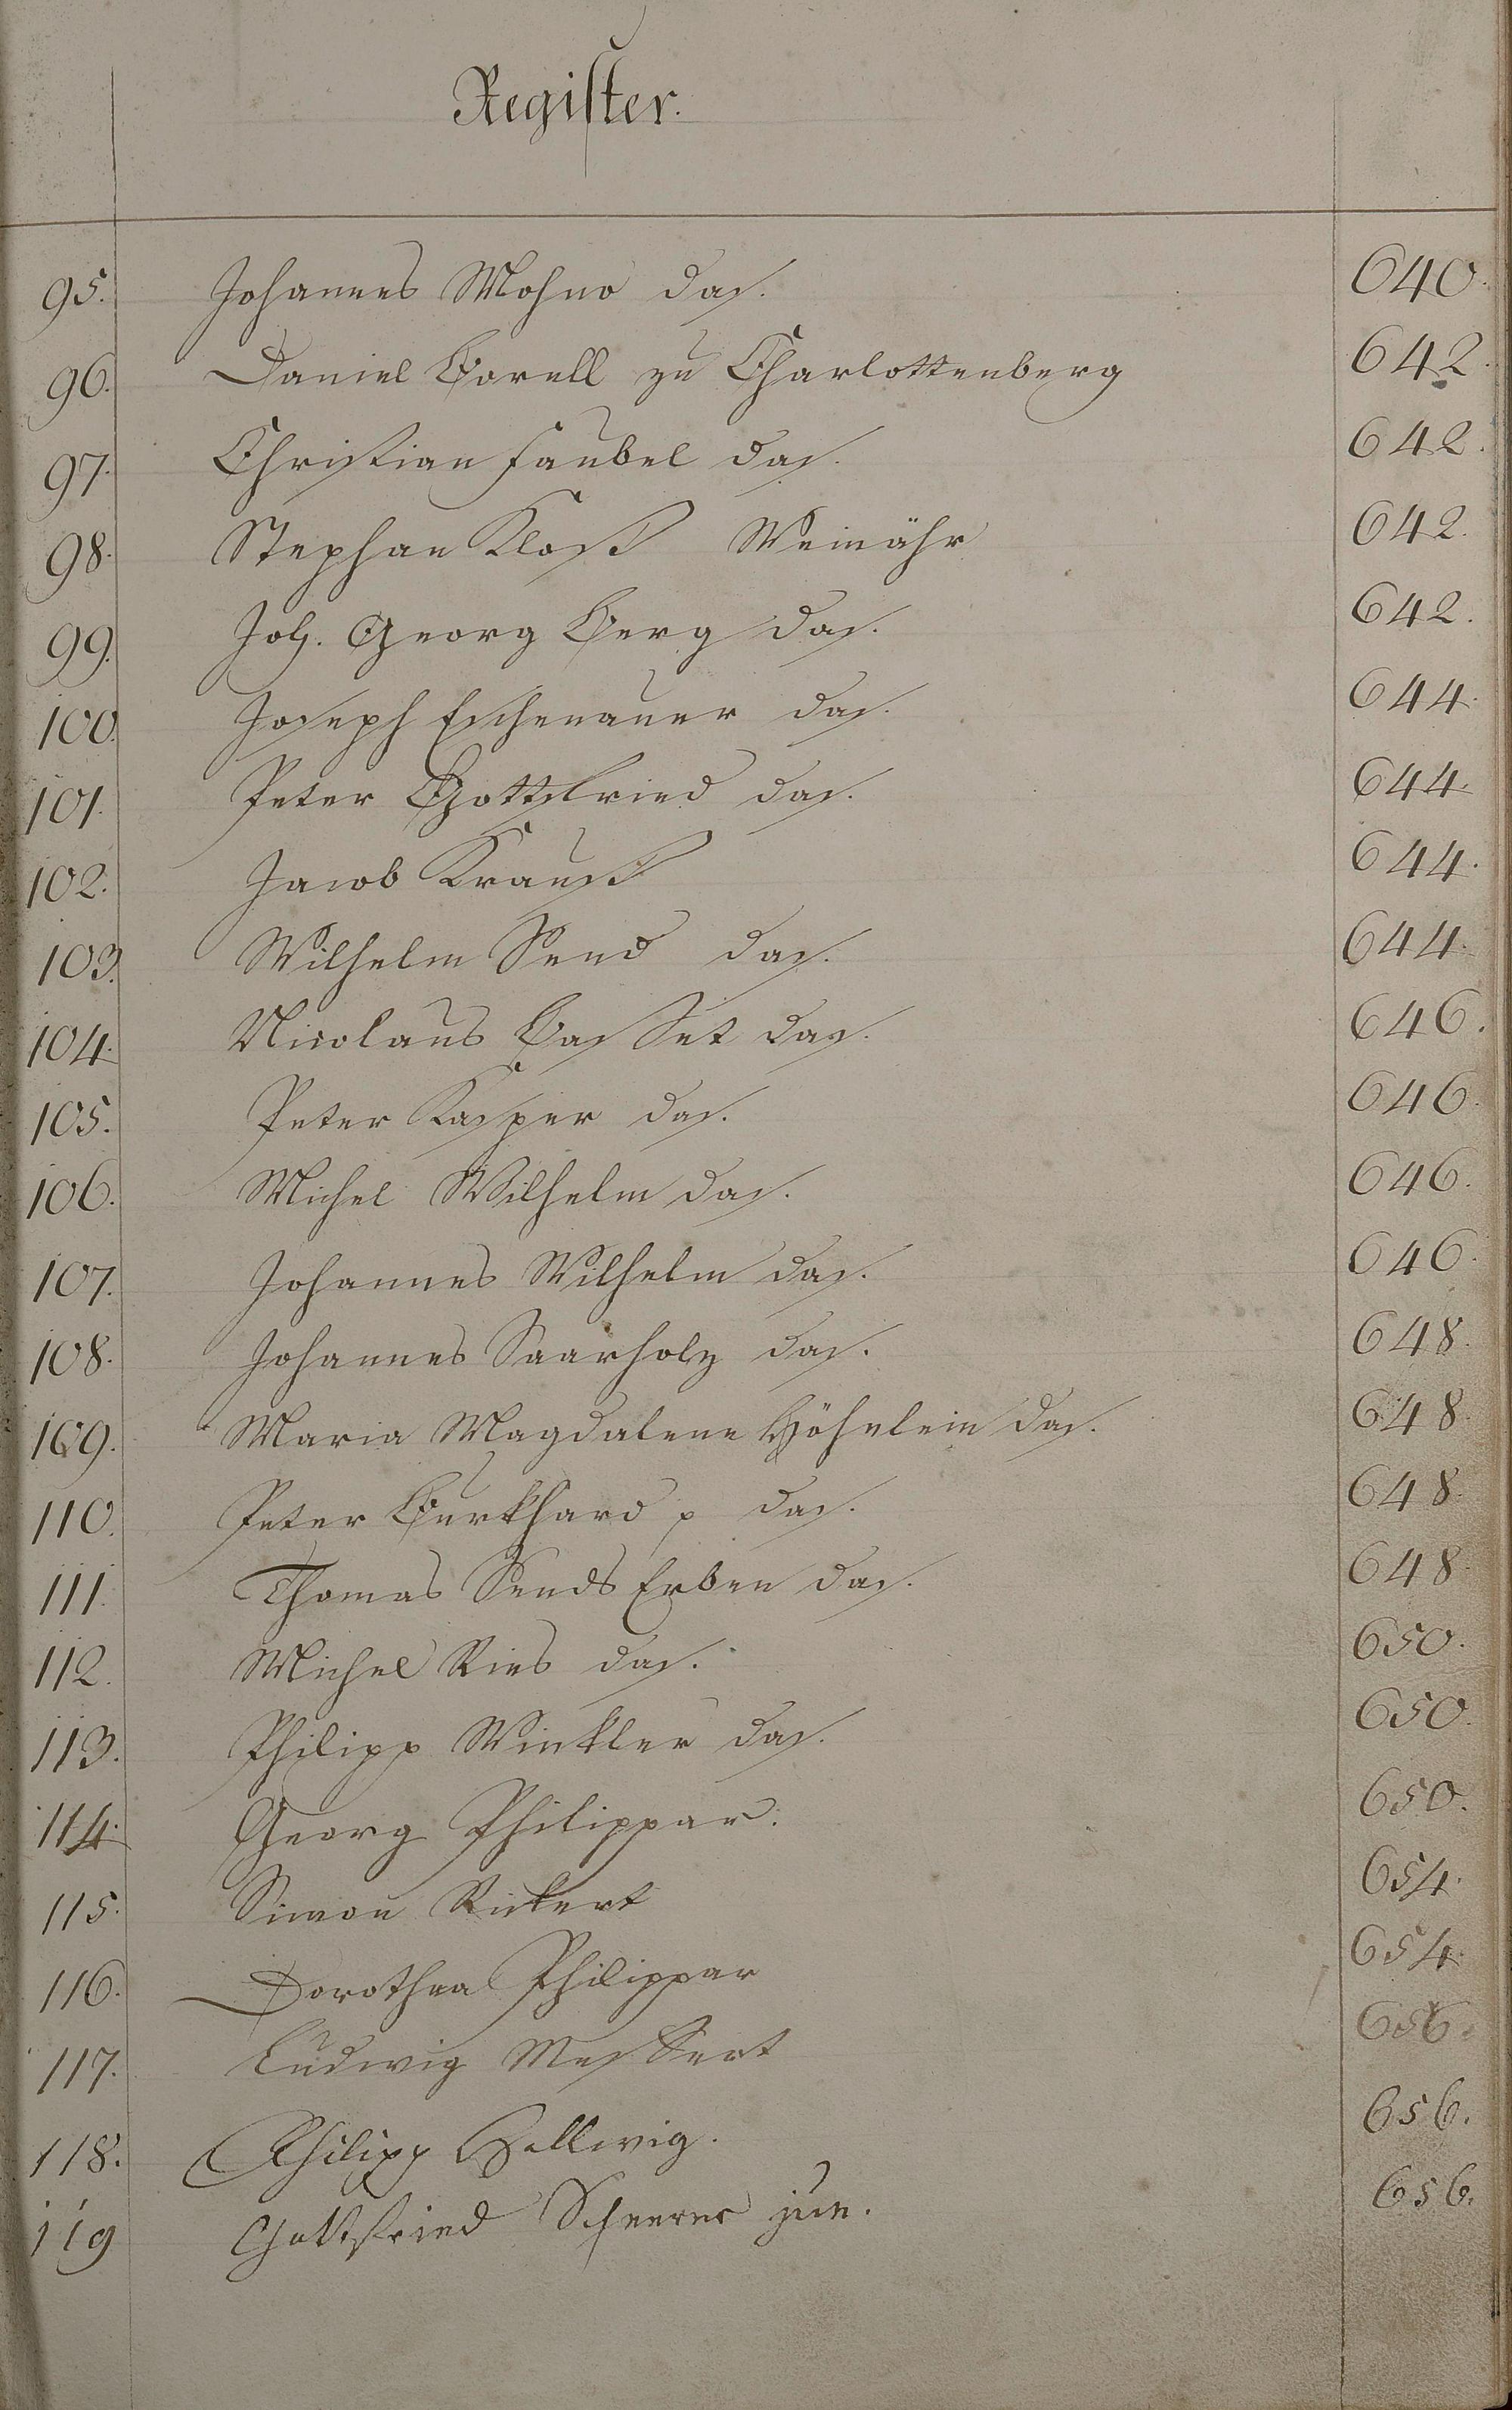 Register.
95. Johannes Mohno das. 640.
96. Daniel Borell zu Charlottenberg 642.
97. Christian Faubel das. 642.
98. Stephan Kloß Weinähr 642.
99. Joh. Georg Berg das. 642.
100. Joseph Eschenauer das. 644.
101. Peter Gottfried das. 644.
102. Jacob Krauß 644.
103. Wilhelm Send das. 644.
104. Nicolaus Basset das. 646.
105. Peter Kasper das. 646.
106. Michel Wilhelm das. 646.
107. Johannes Wilhelm das. 646.
108. Johannes Saarholz das. 648.
109. Maria Magdalene Höhnlein das. 648.
110. Peter Burkhard p das. 648.
111. Thomas Sends Erben das. 648.
112. Michel Ries das. 650.
113. Philipp Winkler das. 650.
114. Georg Philippar. 650.
115. Simon Rickert 654.
116. Dorothea Philippar 654.
117. Ludwig Messert 656.
118. Philipp Hellwig. 656.
119 Gottfried Scheerer jun. 656.